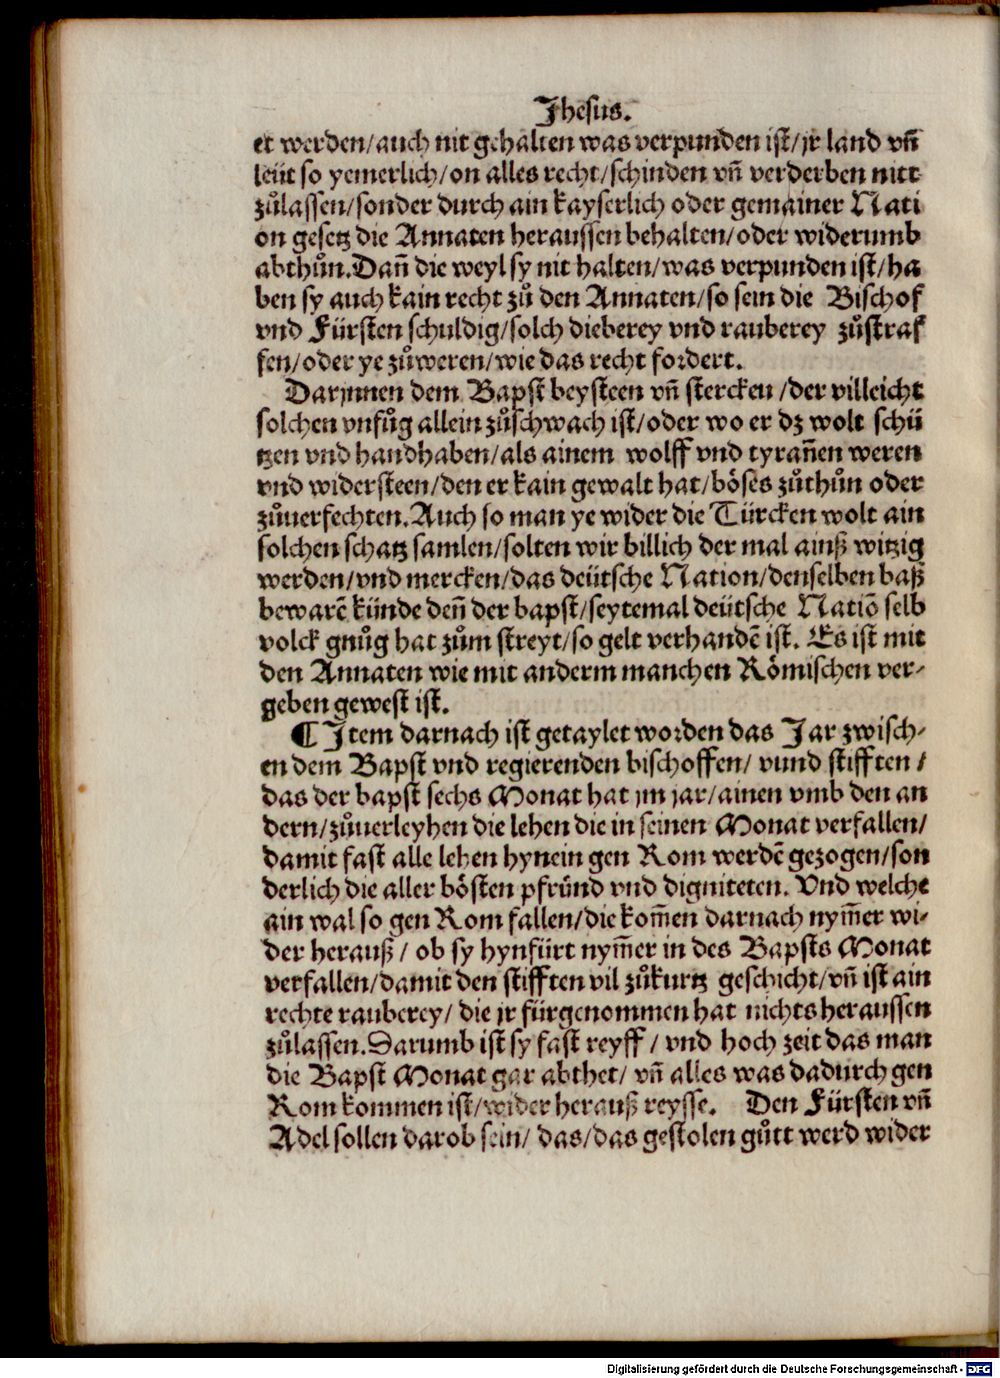 Jhesus.
et werden/auch nit gehalten was verpunden ist/jr land vn̄
leüt so yemerlich/on alles recht/schinden vn̄ verderben nitt
zůlassen/sonder durch ain kayserlich oder gemainer Nati
on gesetz die Annaten heraussen behalten/oder widerumb
abthůn.Dan̄ die weyl sy nit halten/was verpunden ist/ha
ben sy auch kain recht zů den Annaten/so sein die Bischof
vnd Fürsten schuldig/solch dieberey vnd rauberey zůstraf
fen/oder ye zůweren/wie das recht fordert.
Darjnnen dem Bapst beysteen vn̄ stercken /der villeicht
solchen vnfůg allein zůschwach ist/oder wo er dz wolt schü
tzen vnd handhaben/als ainem wolff vnd tyran̄en weren
vnd widersteen/den er kain gewalt hat/böses zůthůn oder
zůuerfechten.Auch so man ye wider die Türcken wolt ain
solchen schatz samlen/solten wir billich der mal ainß witzig
werden/vnd mercken/das deütsche Nation/denselben baß
bewarē künde den̄ der bapst/seytemal deütsche Natiō selb
volck gnůg hat zům streyt/so gelt verhandē ist. Es ist mit
den Annaten wie mit anderm manchen Römischen ver-
geben gewest ist.
¶ Jtem darnach ist getaylet worden das Jar zwisch-
en dem Bapst vnd regierenden bischoffen/ vnnd stifften /
das der bapst sechs Monat hat jm jar/ainen vmb den an
dern/zůuerleyhen die lehen die in seinen Monat verfallen/
damit fast alle lehen hynein gen Rom werdē gezogen/son
derlich die aller bösten pfründ vnd digniteten. Vnd welche
ain wal so gen Rom fallen/die kom̄en darnach nym̄er wi-
der herauß / ob sy hynfürt nym̄er in des Bapsts Monat
verfallen/damit den stifften vil zůkurtz geschicht/vn̄ ist ain
rechte rauberey/ die jr fürgenommen hat nichts heraussen
zůlassen.Darumb ist sy fast reyff / vnd hoch zeit das man
die Bapst Monat gar abthet/ vn̄ alles was dadurch gen
Rom kommen ist/wider herauß reysse. Den Fürsten vn̄
Adel sollen darob sein/ das/das gestolen gůtt werd wider
Digitalisierung gefördert durch die Deutsche Forschungsgemeinschaft - DFG